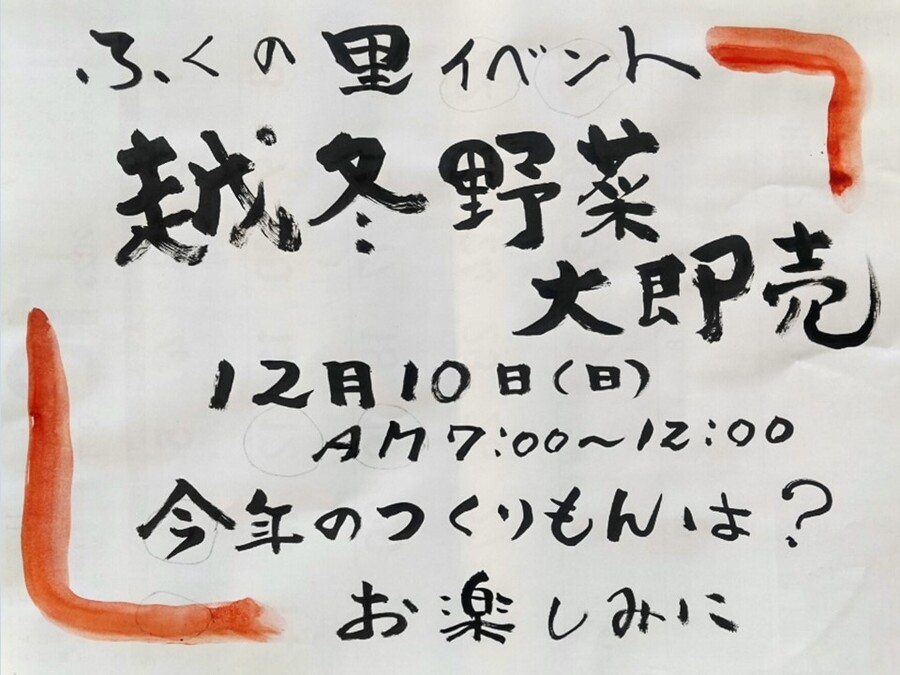 ふくの里イベント
越冬野菜
大即売
12月10日(日)
AM7:00~12:00
今年のつくりもんは?
お楽しみに